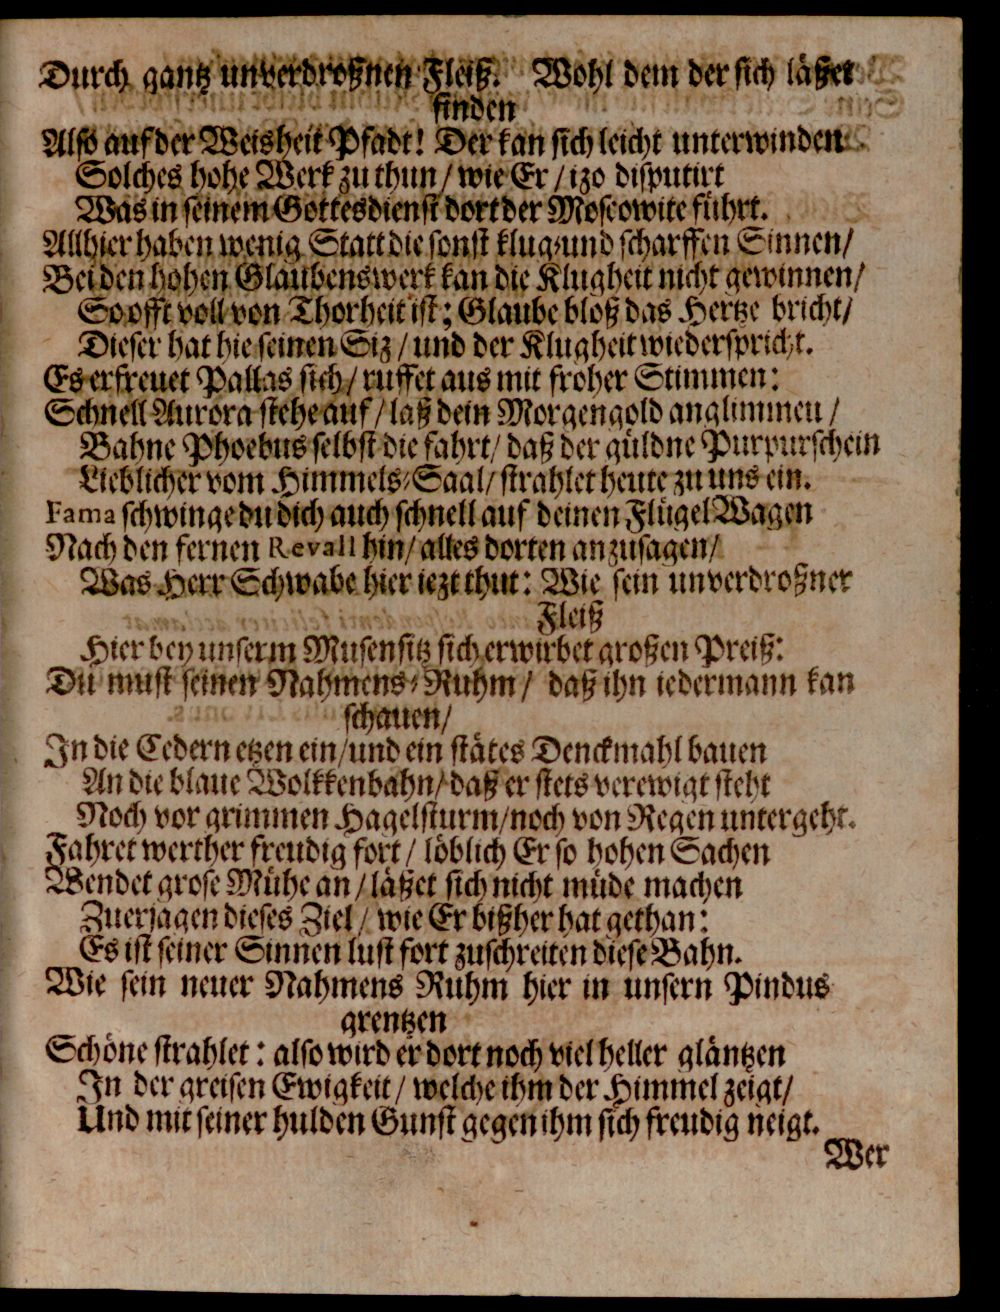 Durch gantz unverdroßnen Fleiß. Wohl dem der sich läßet
finden
Also auf der Weisheit Pfadt! Der kan sich leicht unterwinden
Solches hohe Werk zu thun / wie Er / izo disputirt
Was in seinem Gottesdienst dort der Moscowite führt.
Allhier haben wenig Statt die sonst klug-und scharffen Sinnen/
Bei den hohen Glaubenswerk kan die Klugheit nicht gewinnen/
So offt voll von Thorheit ist; Glaube bloß das Hertze bricht/
Dieser hat hie seinen Siz / und der Klugheit wiederspricht.
Es erfreuet Pallas sich / ruffet aus mit froher Stimmen:
Schnell Aurora stehe auf / laß dein Morgengold anglimmen /
Bahne Phoebus selbst die fahrt/ daß der güldne Purpurschein
Lieblicher vom Himmels-Saal/ strahlet heute zu uns ein.
Fama schwinge du dich auch schnell auf deinen Flügel Wagen
Nach den fernen Revall hin/ alles dorten anzusagen/
Was Herr Schwabe hier iezt thut: Wie sein unverdroßner
Fleiß
Hier bey unserm Musensitz sich erwirbet großen Preiß:
Du must seinen Nahmens-Ruhm / daß ihn iedermann kan
schauen/
In die Cedern etzen ein/und ein stätes Denckmahl bauen
An die blaue Wolkkenbahn/ daß er stets verewigt steht
Noch vor grimmen Hagelsturm/noch von Regen untergeht.
Fahret werther freudig fort / löblich Er so hohen Sachen
Wendet grose Mühe an / läßet sich nicht müde machen
Zuerjagen dieses Ziel / wie Er bißher hat gethan:
Es ist seiner Sinnen lust fort zuschreiten diese Bahn.
Wie sein neuer Nahmens Ruhm hier in unsern Pindus
grentzen
Schöne strahlet: also wird er dort noch viel heller gläntzen
In der greisen Ewigkeit / welche ihm der Himmel zeigt/
Und mit seiner hulden Gunst gegen ihm sich freudig neigt.
Wer